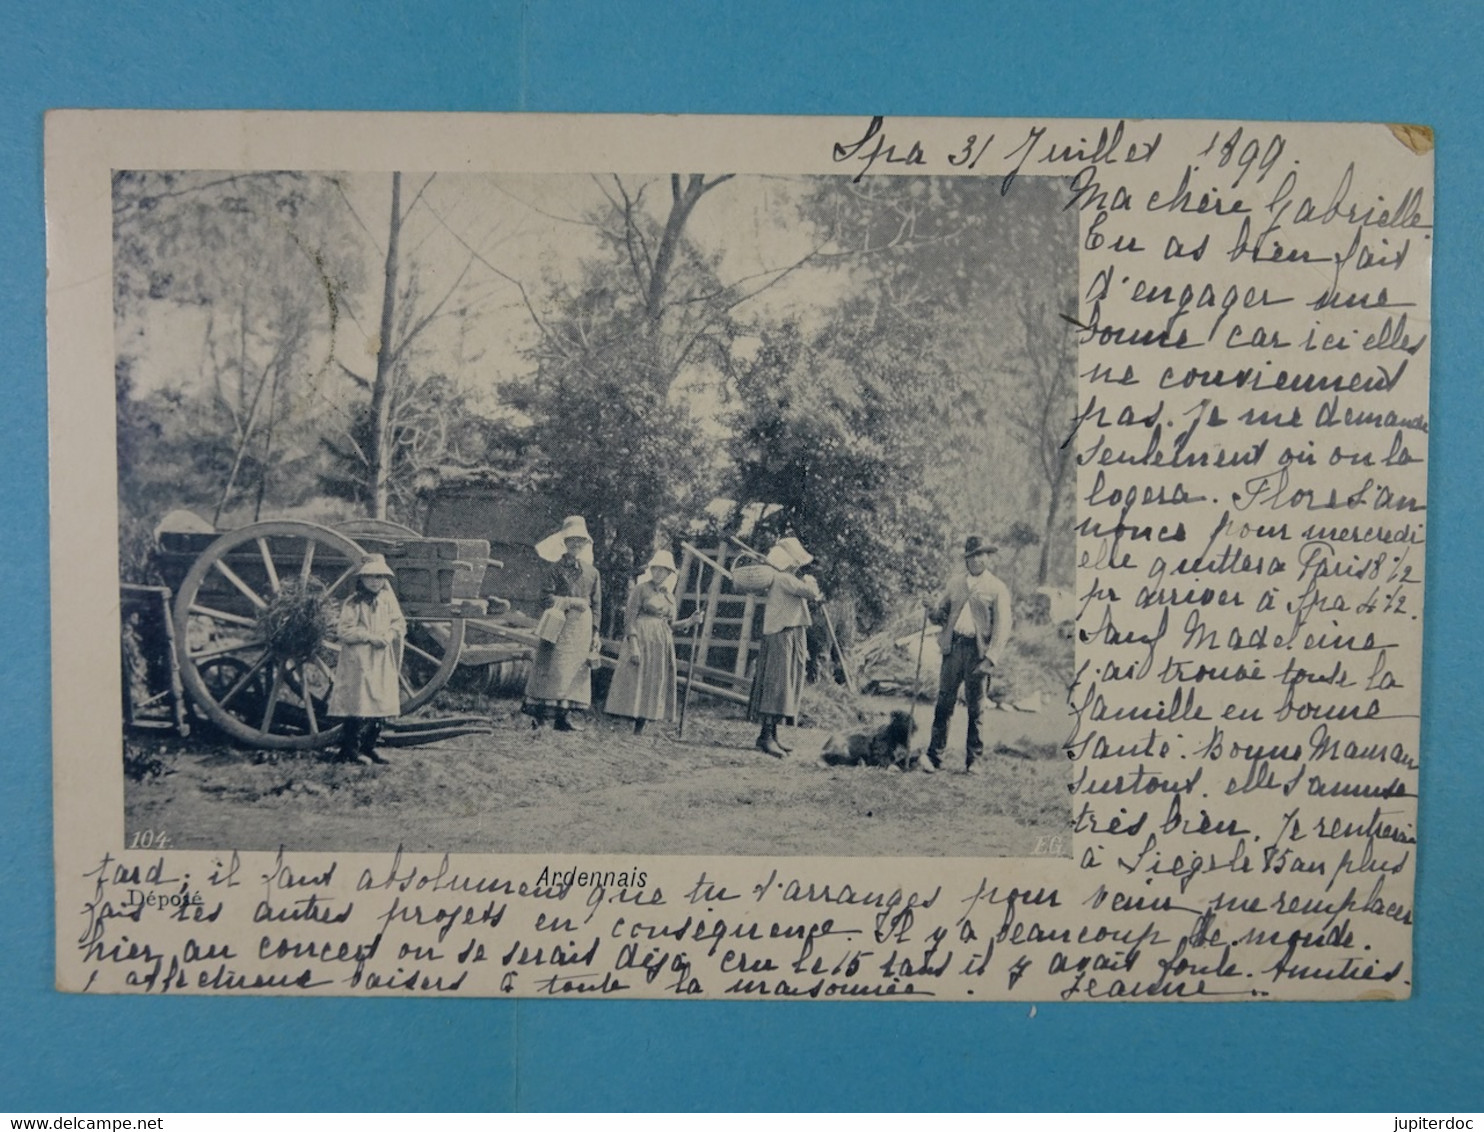 Spa 31 Juillet 1899.
Ma chère Gabrielle.
Tu as bien fait
d'engager une
bonne car ici elles
ne conviennent
pas. Je me demande
seulement où on la
logera. Flore s'an
nonce pour mercredi
elle quittera Paris 8 1/2
pr arriver à Spa 4 1/2.
Sauf Madeleine
j'ai trouvé toute la
famille en bonne
santé. Bonne Maman
surtout. elle s'amuse
très bien. Je rentrerai
à Liège le 15 au plus
104.
EG.
Ardennais
Déposé
tard; il faut absolument que tu t'arranges pour venir me remplacer
fais tes autres projets en conséquence. Il y a beaucoup de monde.
hier au concert on se serait déjà cru le 15 tant il y avait foule. Amitiés.
affectueux baisers à toute la maisonnée. Jeanne
www.delcampe.net
jupiterdoc